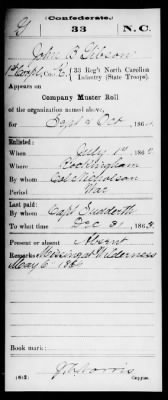 (Confederate.)
G 33 N.C.
John B. Gibson
1st Corpl, Co. C, 33 Reg't North Carolina
Infantry (State Troops).
Company Muster Roll
of the organization named above,
for Sept & Oct, 186
Enlisted:
When July 1st, 186
Where Rockingham
By whom Col. Nicholson
Period War
Last paid:
By whom Capt. Sudderth
To what time Dec 31, 1863.
Present or absent Absent
Remarks: Missing at Wilderness
May 6th 1864
Book mark:
(642)
Copyist.